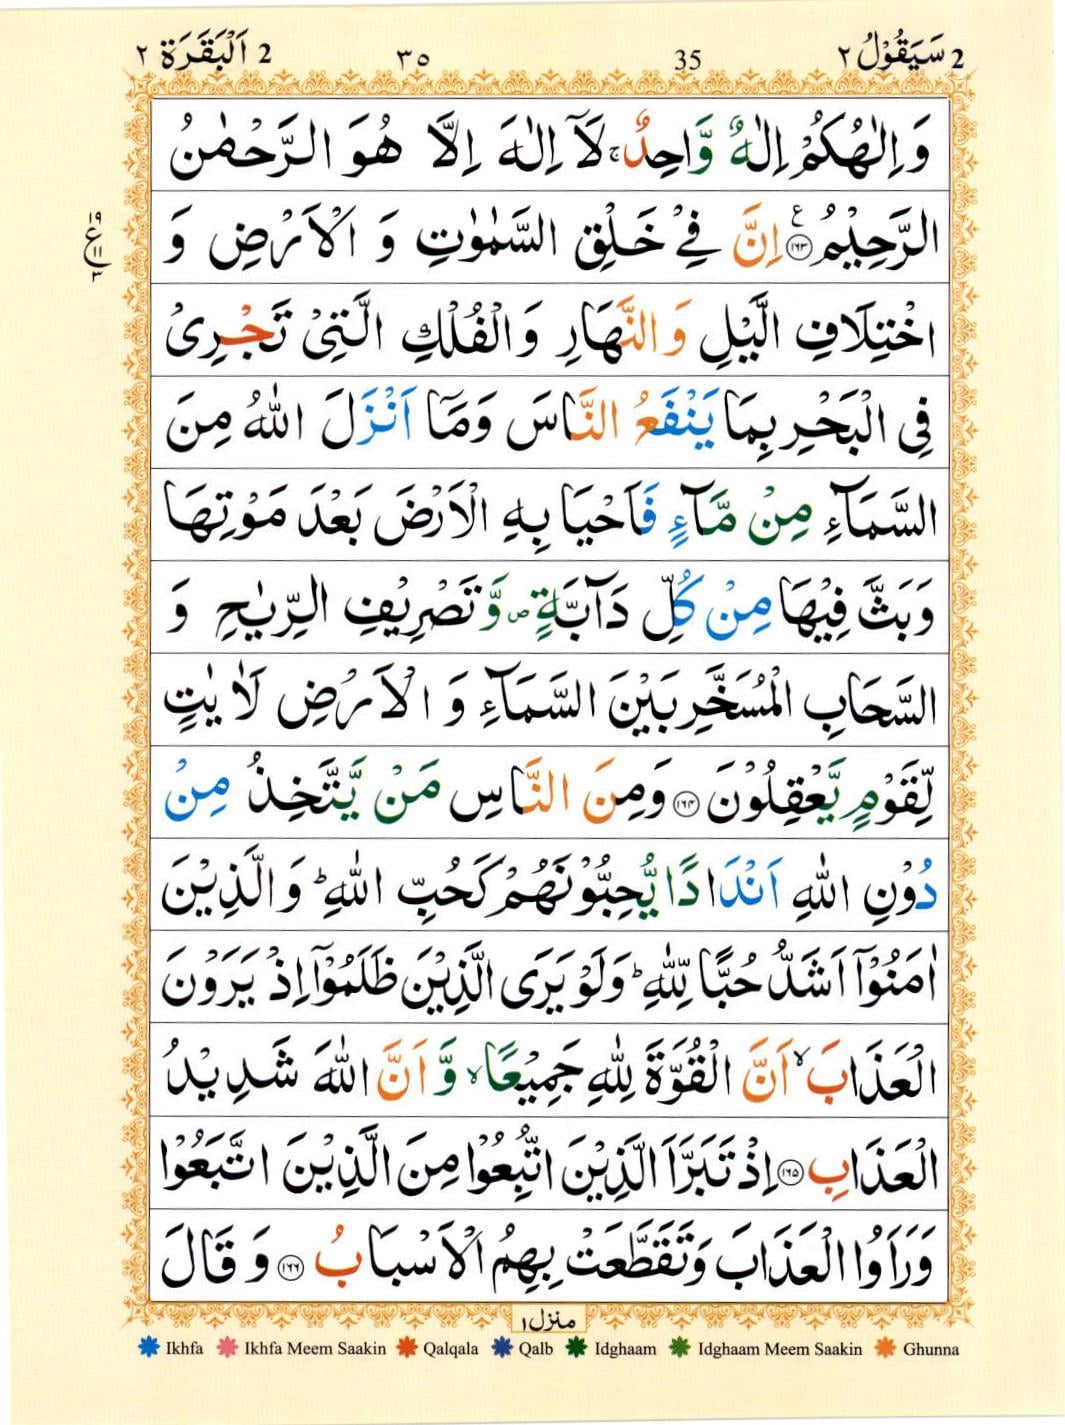 2 سَيَقُوْلُ ٢ 35 ٣٥ 2 اَلْبَقَرَة ٢
وَاِلٰهُكُمْ اِلٰهٌ وَّاحِدٌ ۚ لَآ اِلٰهَ اِلَّا هُوَ الرَّحْمٰنُ
الرَّحِيْمُ ۧ ﴿١٦٣﴾ اِنَّ فِيْ خَلْقِ السَّمٰوٰتِ وَ الْاَرْضِ وَ
١٩ ع ١١ ٣
اخْتِلَافِ الَّيْلِ وَالنَّهَارِ وَالْفُلْكِ الَّتِيْ تَجْرِيْ
فِى الْبَحْرِ بِمَا يَنْفَعُ النَّاسَ وَمَآ اَنْزَلَ اللّٰهُ مِنَ
السَّمَآءِ مِنْ مَّآءٍ فَاَحْيَا بِهِ الْاَرْضَ بَعْدَ مَوْتِهَا
وَبَثَّ فِيْهَا مِنْ كُلِّ دَآبَّةٍ ۪ وَّتَصْرِيْفِ الرِّيٰحِ وَ
السَّحَابِ الْمُسَخَّرِ بَيْنَ السَّمَآءِ وَ الْاَرْضِ لَاٰيٰتٍ
لِّقَوْمٍ يَّعْقِلُوْنَ ﴿١٦٤﴾ وَمِنَ النَّاسِ مَنْ يَّتَّخِذُ مِنْ
دُوْنِ اللّٰهِ اَنْدَادًا يُّحِبُّوْنَهُمْ كَحُبِّ اللّٰهِ ؕ وَالَّذِيْنَ
اٰمَنُوْۤا اَشَدُّ حُبًّا لِّلّٰهِ ؕ وَلَوْ يَرَى الَّذِيْنَ ظَلَمُوْۤا اِذْ يَرَوْنَ
الْعَذَابَ ۙ اَنَّ الْقُوَّةَ لِلّٰهِ جَمِيْعًا ۙ وَّاَنَّ اللّٰهَ شَدِيْدُ
الْعَذَابِ ﴿١٦٥﴾ اِذْ تَبَرَّاَ الَّذِيْنَ اتُّبِعُوْا مِنَ الَّذِيْنَ اتَّبَعُوْا
وَرَاَوُا الْعَذَابَ وَتَقَطَّعَتْ بِهِمُ الْاَسْبَابُ ﴿١٦٦﴾ وَ قَالَ
منزل ١
Ikhfa Ikhfa Meem Saakin Qalqala Qalb Idghaam Idghaam Meem Saakin Ghunna